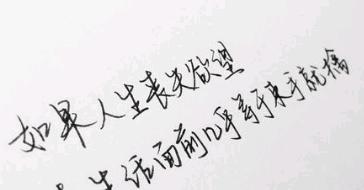 如果人生丧失欲望
生活面前几乎等于束手就擒